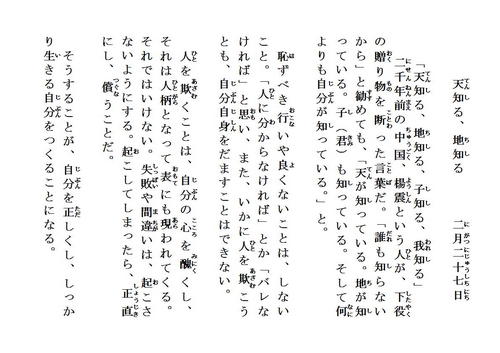 天知る、地知る　二月二十七日
「天知る、地知る、子知る、我知る」
二千年前の中国、楊震という人が、下役
の贈り物を断った言葉だ。「誰も知らない
から」と勧めても、「天が知っている。地が知
っている。子（君）も知っている。そして何
よりも自分が知っている。」と。
恥ずべき行いや良くないことは、しない
こと。「人に分からなければ」とか「バレな
ければ」と思い、また、いかに人を欺こう
とも、自分自身をだますことはできない。
人を欺くことは、自分の心を醜くし、
それは人柄となって表にも現われてくる。
それではいけない。失敗や間違いは、起こさ
ないようにする。起こしてしまったら、正直
にし、償うことだ。
そうすることが、自分を正しくし、しっか
り生きる自分をつくることになる。